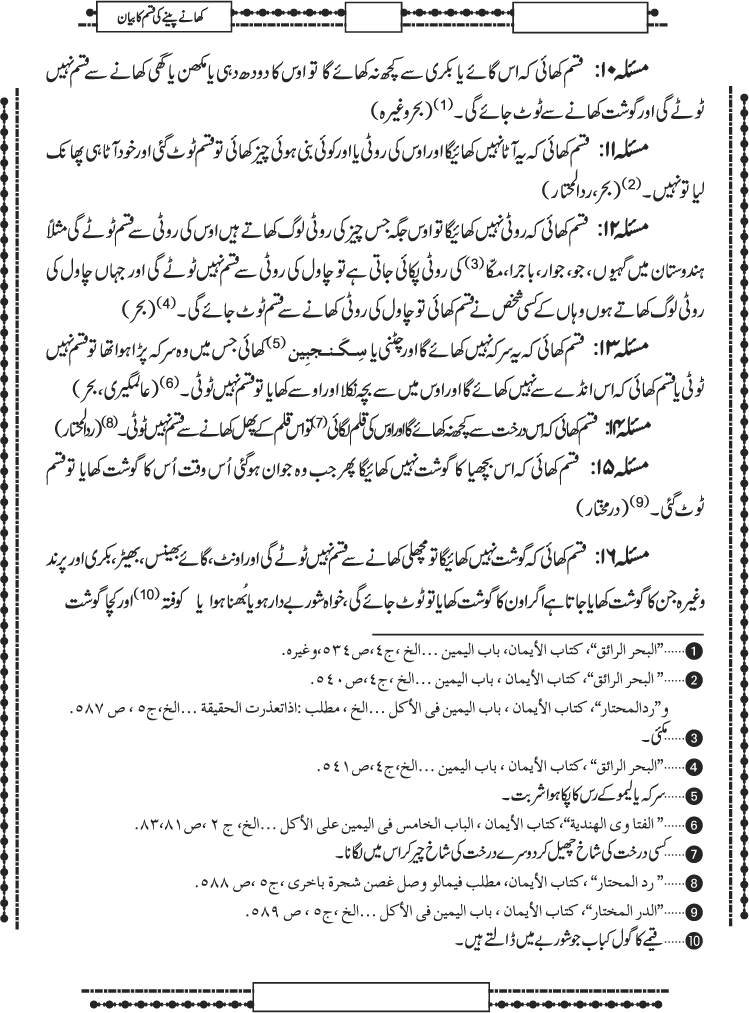 کھانے پینے کی قسم کا بیان
مسئلہ ۱۰: قسم کھائی کہ اس گائے یا بکری سے کچھ نہ کھائے گا تو اوس کا دودھ دہی یا مکھن یا گھی کھانے سے قسم نہیں
ٹوٹے گی اور گوشت کھانے سے ٹوٹ جائے گی۔(1) (بحر وغیرہ)
مسئلہ ۱۱: قسم کھائی کہ یہ آٹا نہیں کھائیگا اور اوس کی روٹی یا اور کوئی بنی ہوئی چیز کھائی تو قسم ٹوٹ گئی اور خود آٹا ہی پھانک
لیا تو نہیں۔(2) (بحر، ردالمحتار)
مسئلہ ۱۲: قسم کھائی کہ روٹی نہیں کھائیگا تو اوس جگہ جس چیز کی روٹی لوگ کھاتے ہیں اوس کی روٹی سے قسم ٹوٹے گی مثلاً
ہندوستان میں گیہوں، جو، جوار، باجرا، مکّا(3) کی روٹی پکائی جاتی ہے تو چاول کی روٹی سے قسم نہیں ٹوٹے گی اور جہاں چاول کی
روٹی لوگ کھاتے ہوں وہاں کے کسی شخص نے قسم کھائی تو چاول کی روٹی کھانے سے قسم ٹوٹ جائے گی۔(4) (بحر)
مسئلہ ۱۳: قسم کھائی کہ یہ سرکہ نہیں کھائے گا اور چٹنی یا سِکَنْجبین(5) کھائی جس میں وہ سرکہ پڑا ہوا تھا تو قسم نہیں
ٹوٹی یا قسم کھائی کہ اس انڈے سے نہیں کھائے گا اور اوس میں سے بچہ نکلا اور اوسے کھایا تو قسم نہیں ٹوٹی۔(6) (عالمگیری، بحر)
مسئلہ ۱۴: قسم کھائی کہ اس درخت سے کچھ نہ کھائے گا اور اوس کی قلم لگائی(7) تو اس قلم کے پھل کھانے سے قسم نہیں ٹوٹی۔(8) (ردالمحتار)
مسئلہ ۱۵: قسم کھائی کہ اس بچھیا کا گوشت نہیں کھائیگا پھر جب وہ جوان ہوگئی اُس وقت اُس کا گوشت کھایا تو قسم
ٹوٹ گئی۔(9) (درمختار)
مسئلہ ۱۶: قسم کھائی کہ گوشت نہیں کھائیگا تو مچھلی کھانے سے قسم نہیں ٹوٹے گی اور اونٹ، گائے بھینس، بھیڑ، بکری اور پرند
وغیرہ جن کا گوشت کھایا جاتا ہے اگر اون کا گوشت کھایا تو ٹوٹ جائے گی، خواہ شوربے دار ہو یا بُھنا ہوا یا کوفتہ(10) اور کچا گوشت
1 ......"البحر الرائق"، كتاب الأيمان، باب اليمين ...الخ ،ج٤،ص٥٣٤،وغيره.
2 ......" البحر الرائق"، كتاب الأيمان ، باب اليمين ...الخ ،ج٤،ص٥٤٠.
و"ردالمحتار"، كتاب الأيمان ، باب اليمين فى الأكل ...الخ ، مطلب :اذاتعذرت الحقيقة ...الخ،ج٥ ، ص ٥٨٧.
3 ......مکئی۔
4 ......"البحر الرائق" ،كتاب الأيمان ، باب اليمين ...الخ،ج٤،ص٥٤١.
5 ......سرکہ یا لیمو کے رس کا پکا ہوا شربت۔
6 ......" الفتاوى الهندية"،كتاب الأيمان ، الباب الخامس فى اليمين على الأكل ...الخ، ج ٢ ،ص٨٣،٨١.
7 ......کسی درخت کی شاخ چھیل کر دوسرے درخت کی شاخ چیر کر اس میں لگانا۔
8 ......" رد المحتار" ،كتاب الأيمان، مطلب فيمالو وصل غصن شجرة باخرى ،ج٥ ،ص ٥٨٨.
9 ......"الدر المختار"، كتاب الأيمان ، باب اليمين فى الأكل ...الخ ،ج٥ ، ص ٥٨٩.
10 ......قیمے کا گول کباب جو شوربے میں ڈالتے ہیں۔